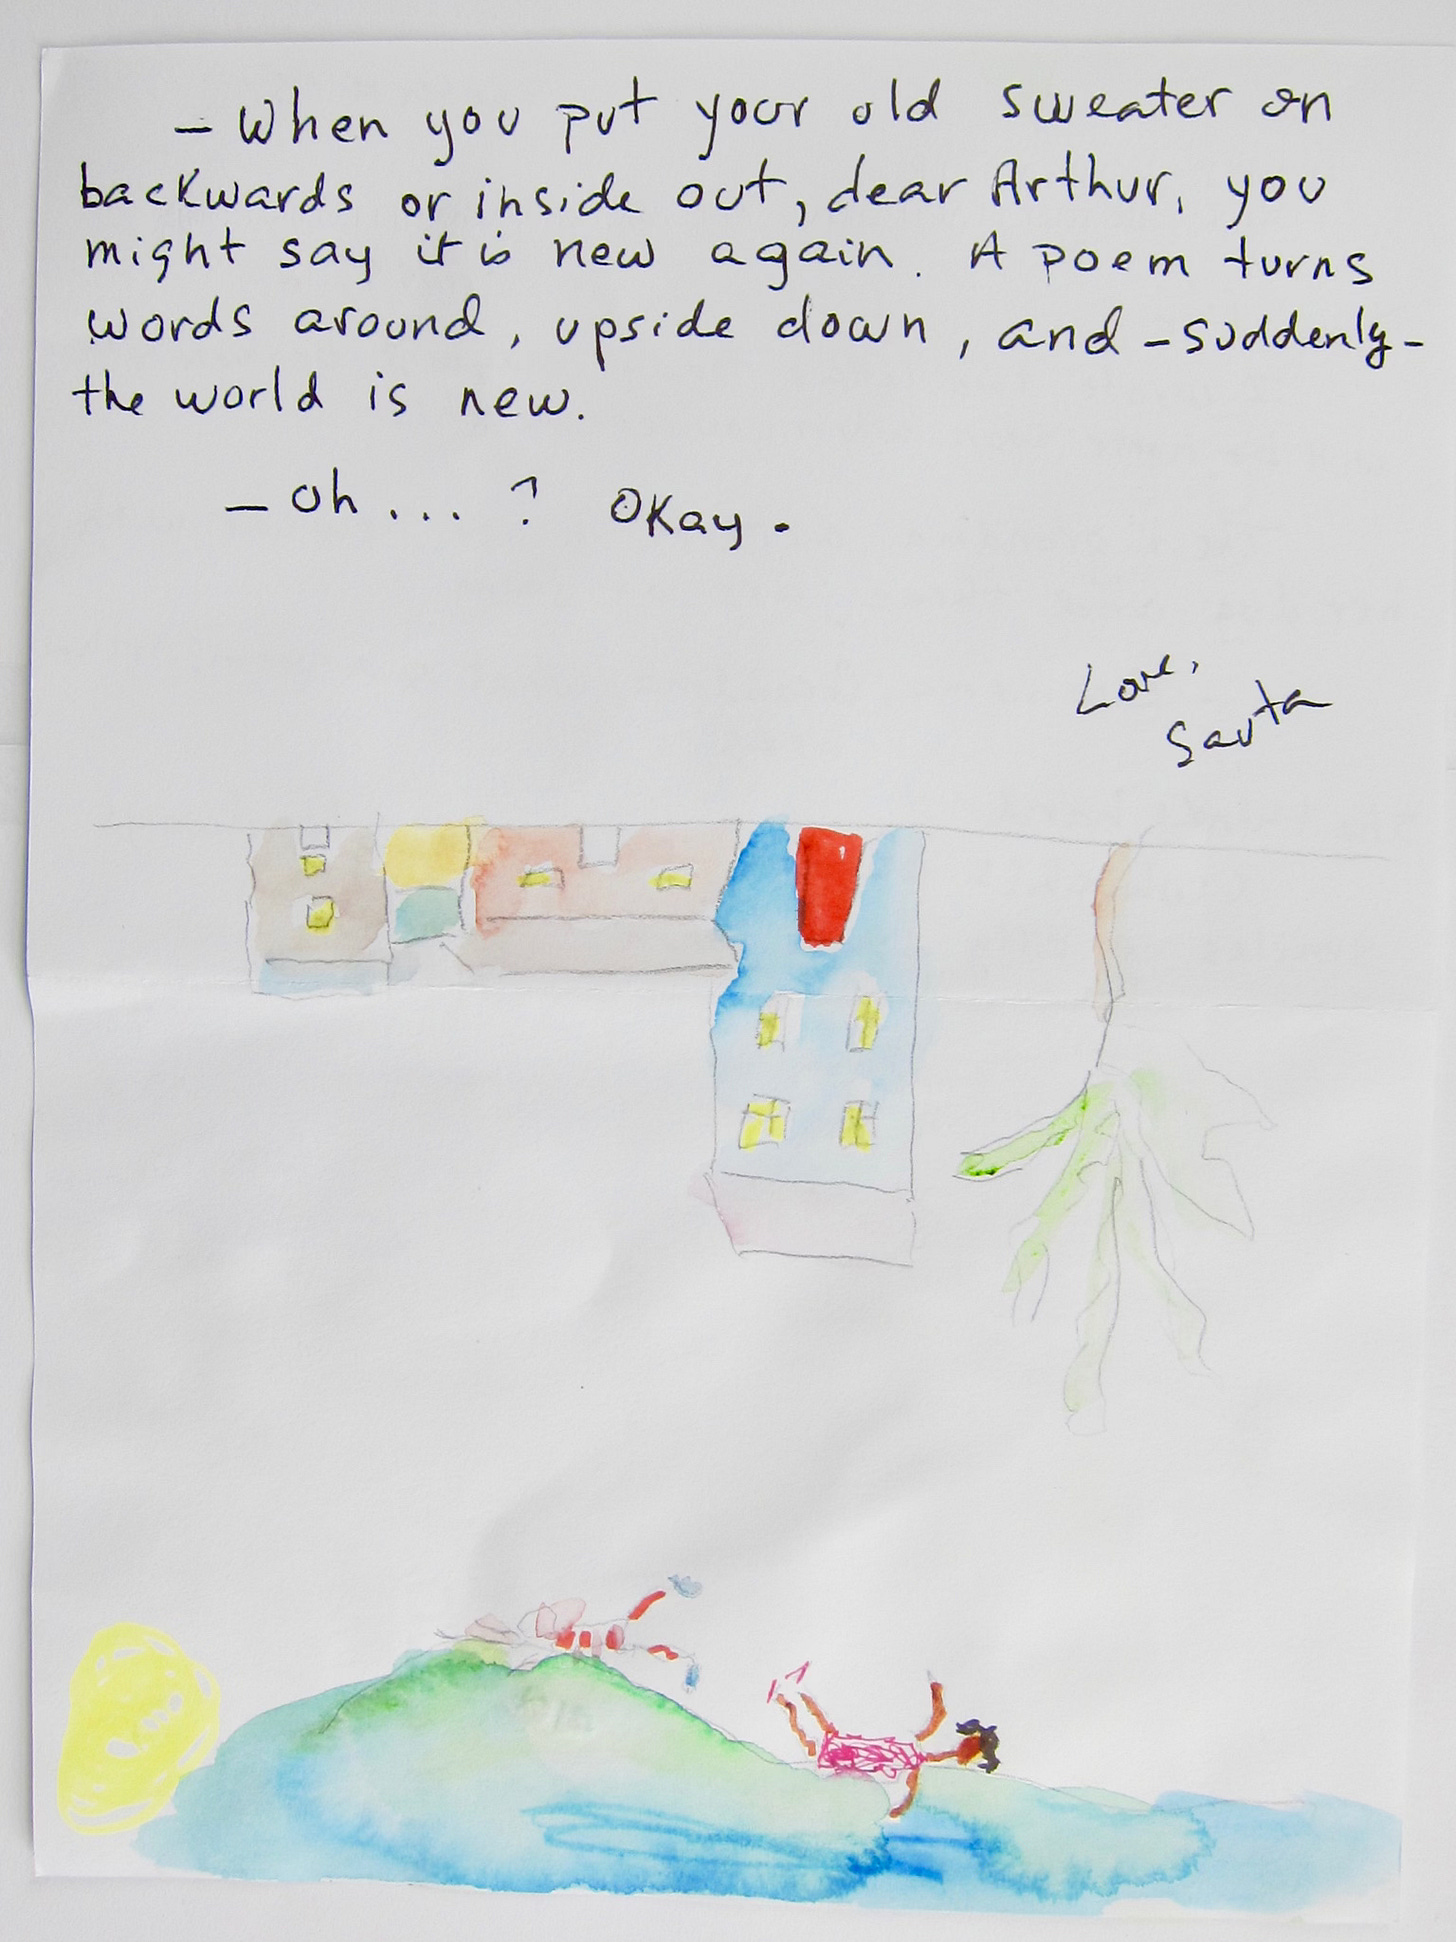 – When you put your old sweater on
backwards or inside out, dear Arthur, you
might say it is new again. A poem turns
words around, upside down, and – suddenly –
the world is new.
– Oh ... ? Okay.
Love,
Savta